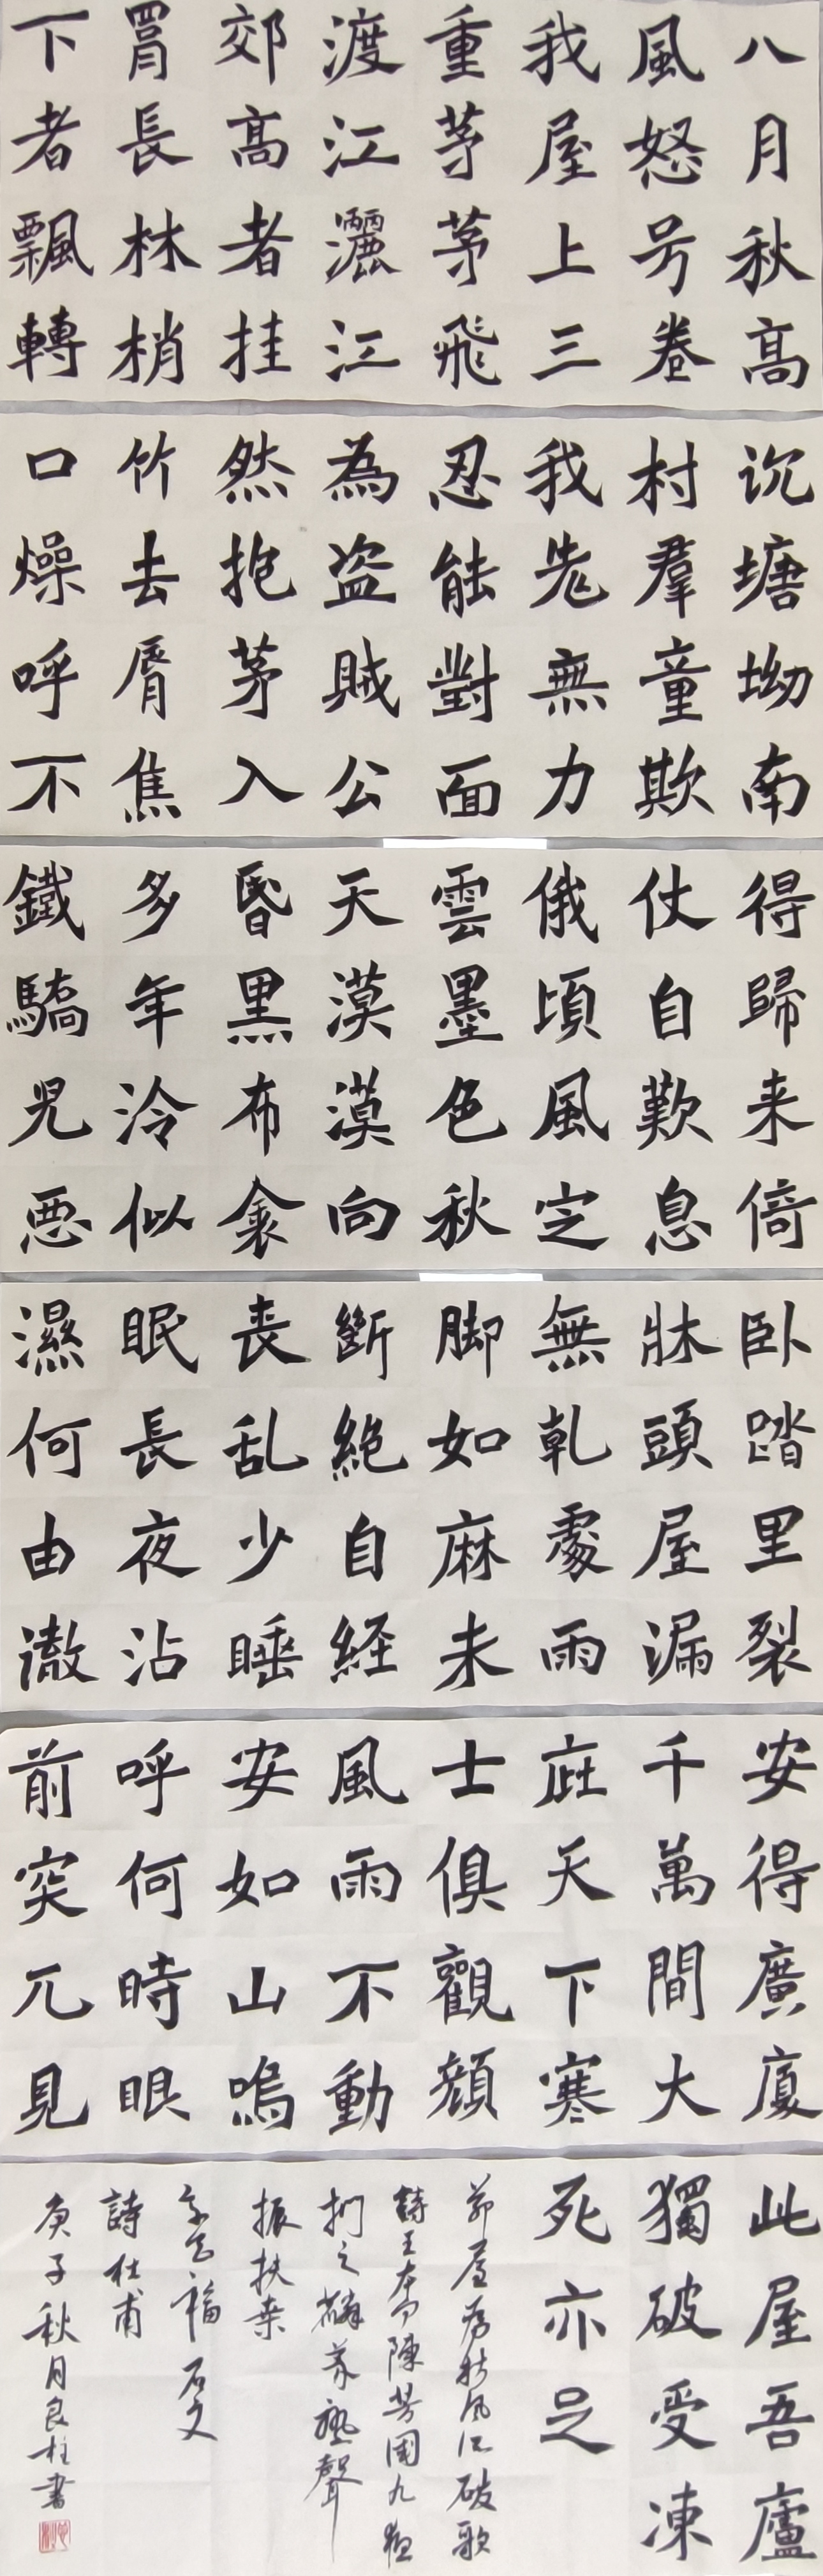 八月秋高
風怒号卷
我屋上三
重茅茅飛
渡江灑江
郊高者挂
罥長林梢
下者飄轉
沉塘坳南
村羣童欺
我老無力
忍能對面
為盗賊公
然抱茅入
竹去脣焦
口燥呼不
得歸来倚
仗自歎息
俄頃風定
雲墨色秋
天漠漠向
昏黑布衾
多年泠似
鐵驕児悪
卧踏里裂
牀頭屋漏
無乾處雨
脚如麻未
斷絶自経
喪乱少睡
眠長夜沾
濕何由澈
安得廣廈
千萬間大
庇天下寒
士俱觀顔
風雨不動
安如山嗚
呼何時眼
前突兀見
此屋吾廬
獨破受凍
死亦足
茅屋為秋風所破歌
詩王陳芳国九
之聲
振扶桒
福
詩杜甫
庚子秋月良柱書